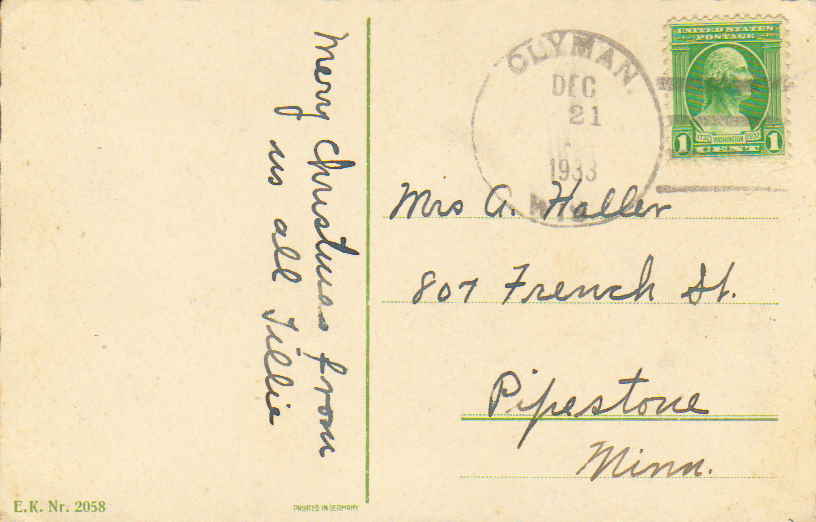 Merry Christmas from
us all Tillie
CLYMAN.
DEC
21
1933
WIS.
UNITED STATES
POSTAGE
WASHINGTON
1 CENT 1
Mrs A. Haller
807 French St.
Pipestone
Minn.
E.K. Nr. 2058
PRINTED IN GERMANY